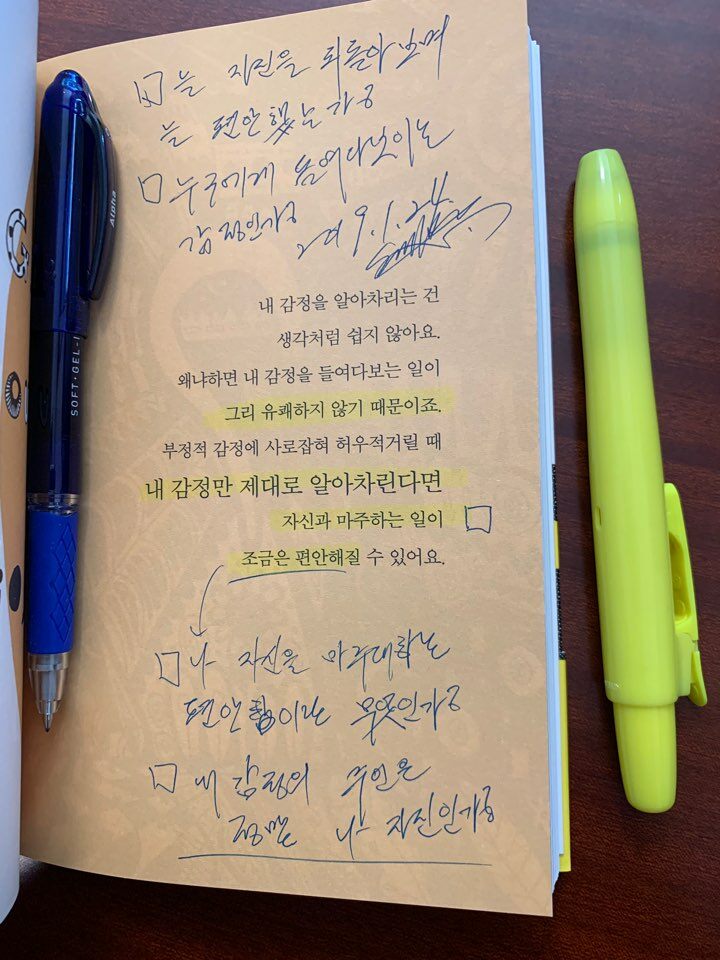 늘 자신을 뒤돌아보며
는 편안했는가?
누구에게 보여다보이는
감정인가?
2019.1.24.
내 감정을 알아차리는 건
생각처럼 쉽지 않아요.
왜냐하면 내 감정을 들여다보는 일이
그리 유쾌하지 않기 때문이죠.
부정적 감정에 사로잡혀 허우적거릴 때
내 감정만 제대로 알아차린다면
자신과 마주하는 일이
조금은 편안해질 수 있어요.
나 자신을 마주대하는
편안함이란 무엇인가?
내 감정의 주인은
정말 나 자신인가?
Alpha
SOFT·GEL-I